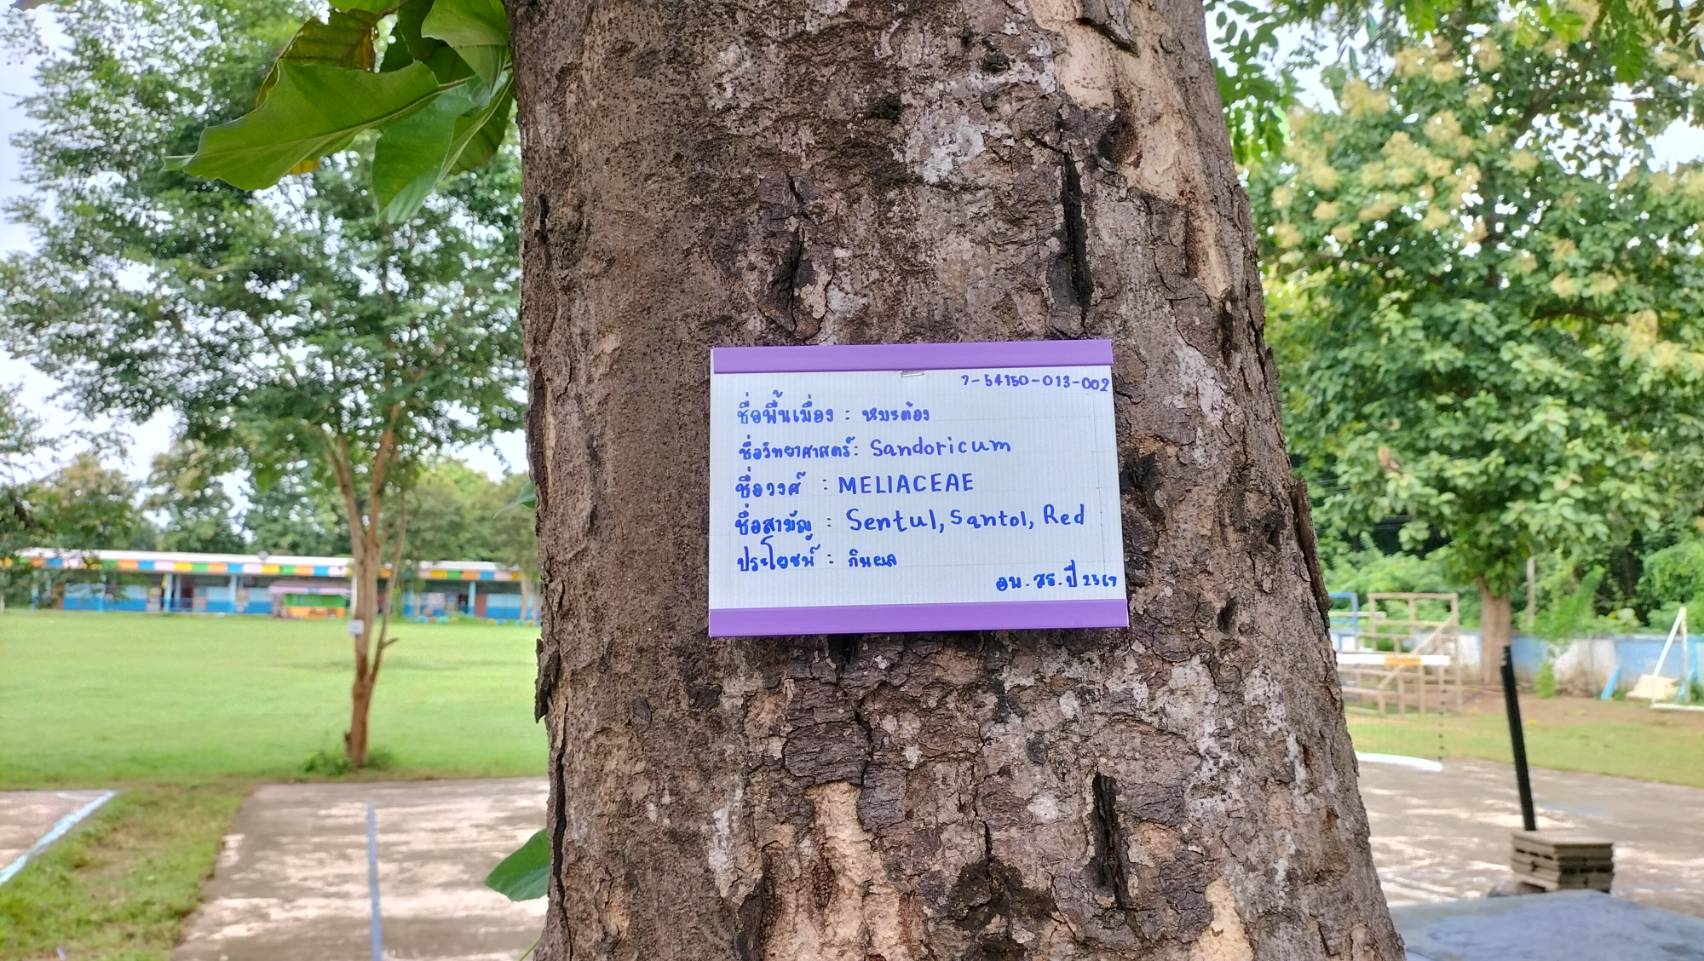 7-54150-013-002
ชื่อพื้นเมือง : หมะต้อง
ชื่อวิทยาศาสตร์: Sandoricum
ชื่อวงศ์ : MELIACEAE
ชื่อสามัญ : Sentul, Santol, Red
ประโยชน์ : กินผล
อพ.สธ. ปี 2567